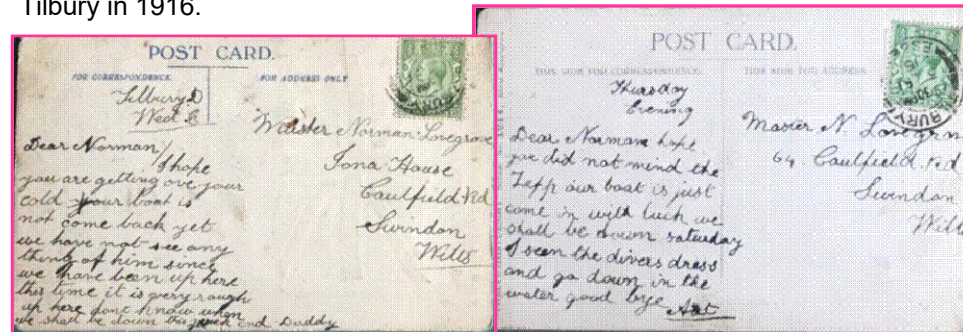 Tilbury in 1916.
POST CARD.
FOR CORRESPONDENCE.
FOR ADDRESS ONLY
Tilbury D
West E
Dear Norman/
I hope
you are getting ove your
cold your boat is
not come back yet
we have not see any
thing of him since
we have been up here
this time it is very rough
up here dont know when
we shall be down this week end Daddy
Master Norman Lovegrove
Iona House
Caulfield Rd
Swindon
Wilts
POST CARD.
THIS SIDE FOR CORRESPONDENCE.
THIS SIDE FOR ADDRESS.
Thursday
Evening
Dear Norman hope
you did not mind the
Zepp our boat is just
come in with luck we
shall be down saturday
I seen the divers dress
and go down in the
water good bye
Master N.
64 Caulfield Rd
Swindon
Wilts